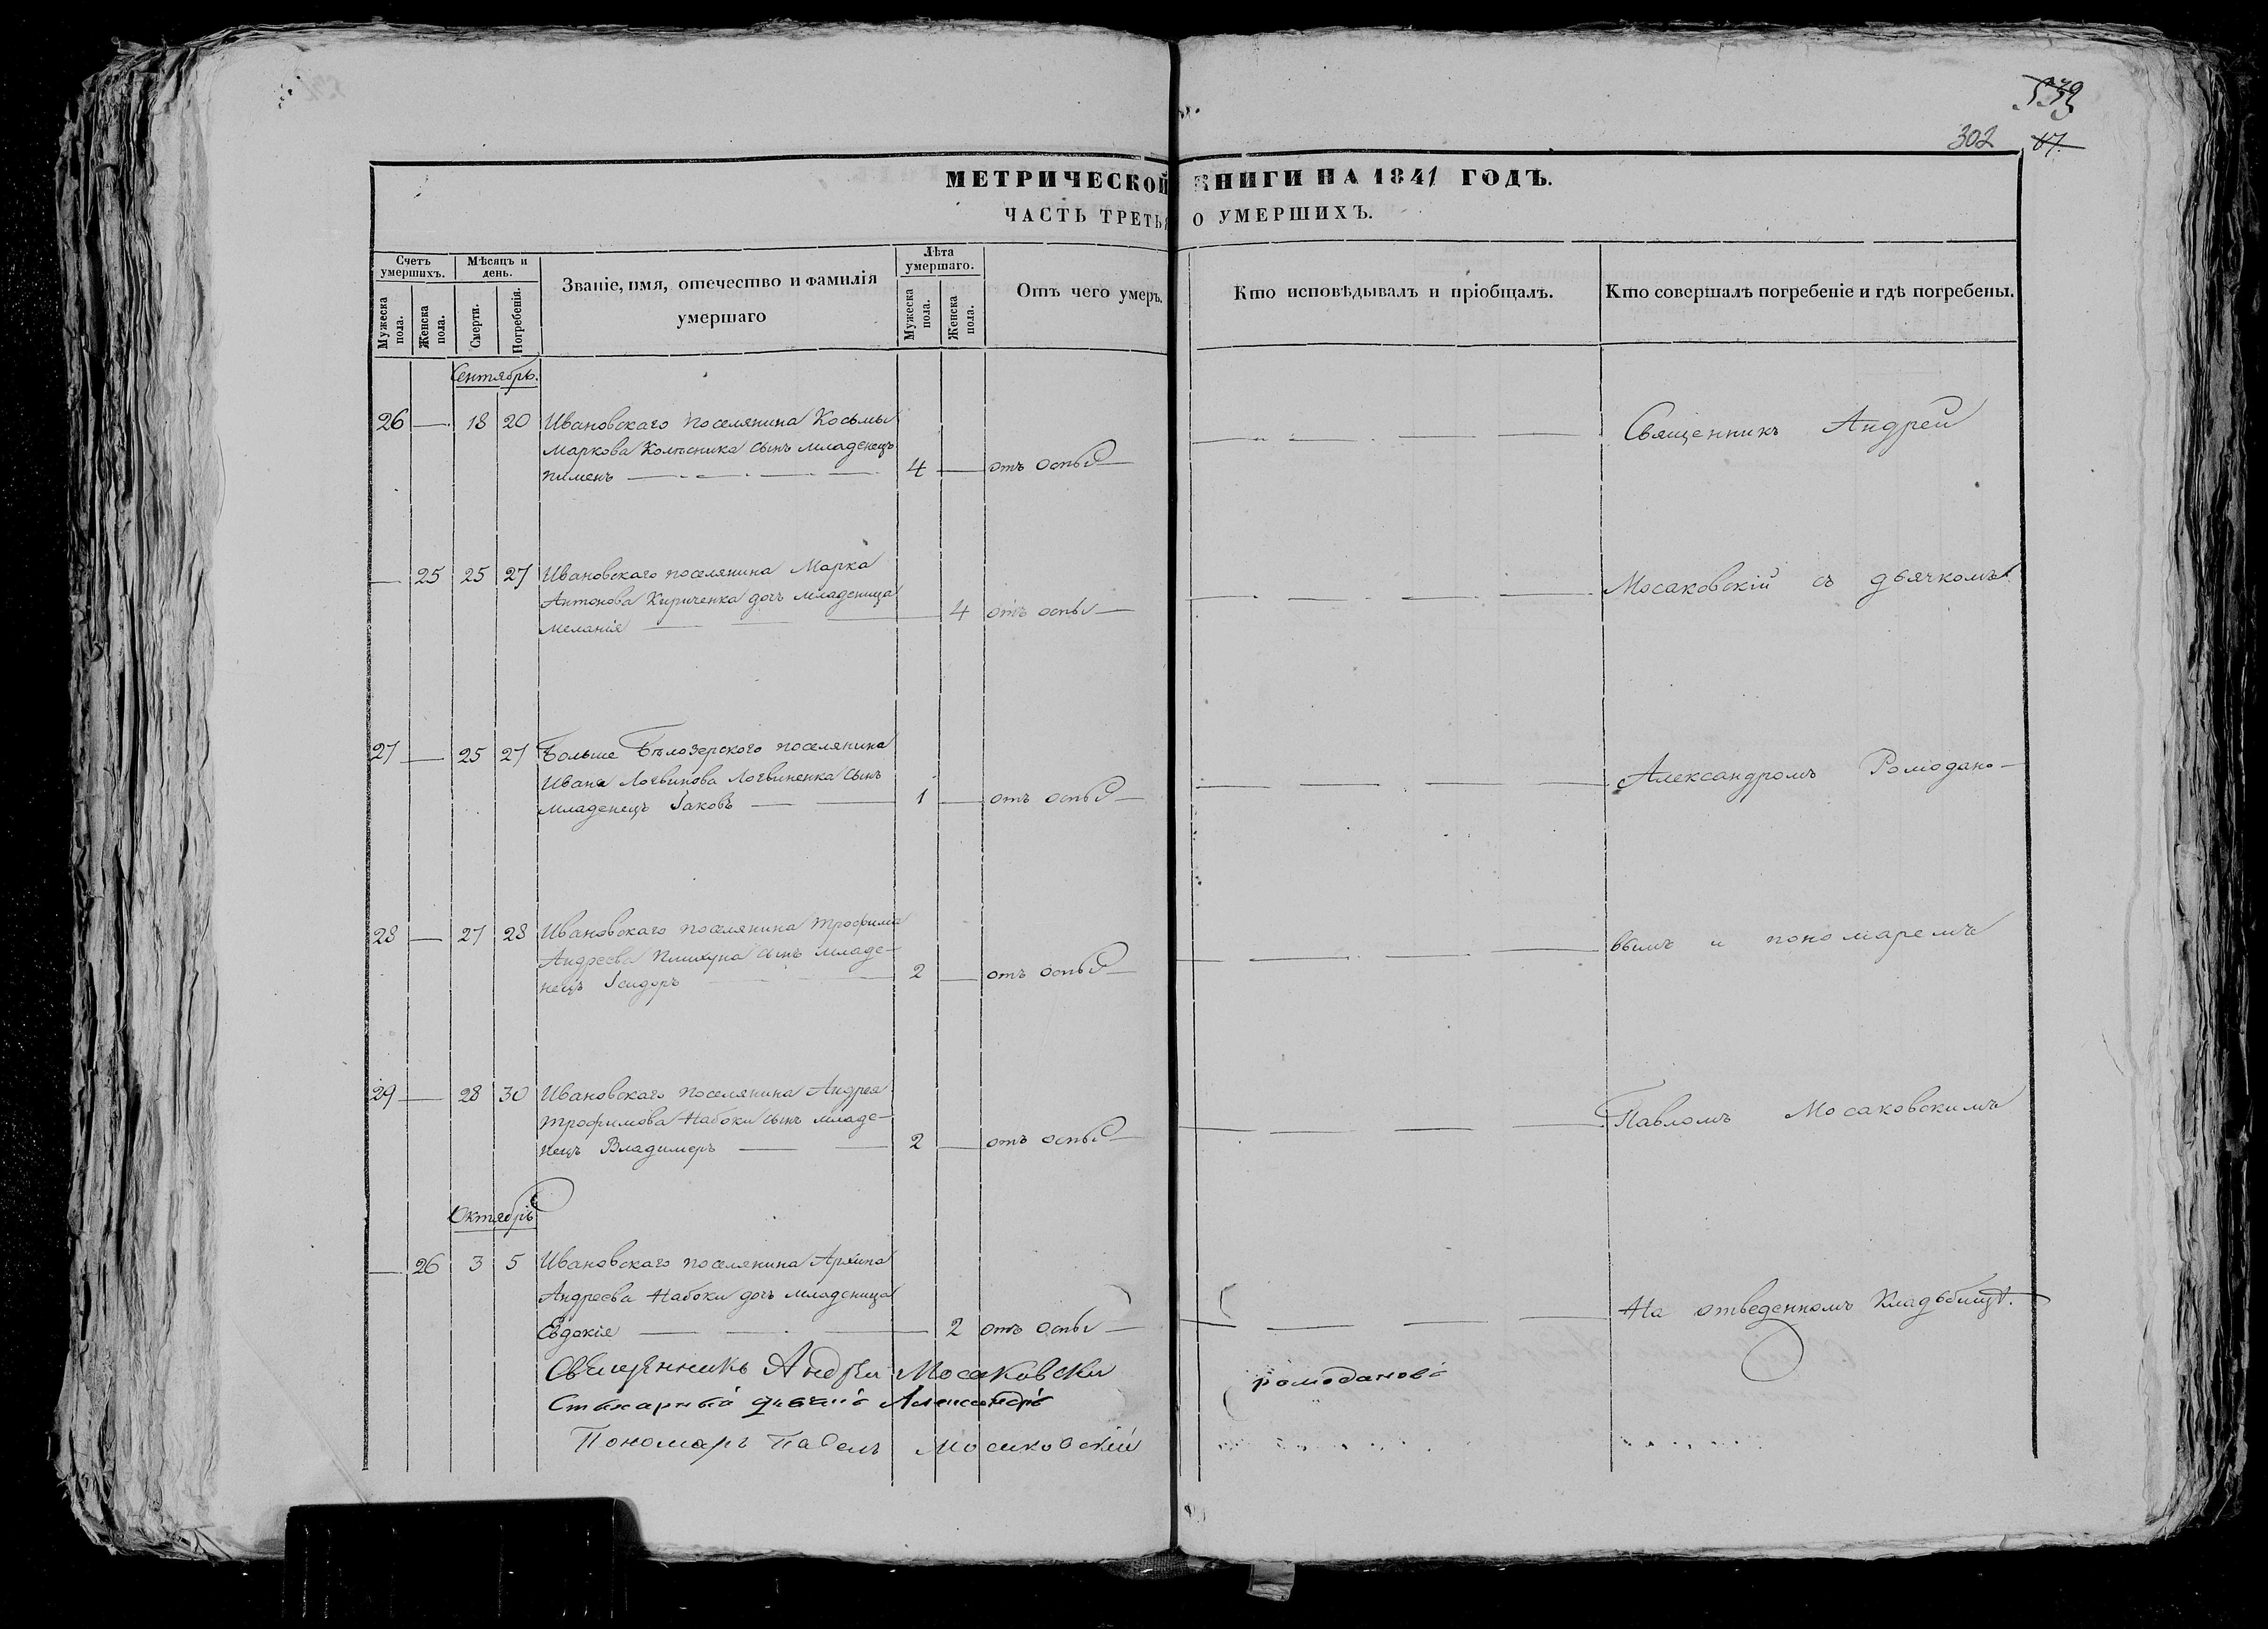 539
302 17.
МЕТРИЧЕСКОЙ КНИГИ НА 1841 ГОДЪ.
ЧАСТЬ ТРЕТЬЯ О УМЕРШИХЪ.
Счетъ умершихъ.
Мужеска пола.
Женска пола.
Мѣсяцъ и день.
Смерти.
Погребенія.
Званіе, имя, отечество и фамилія
умершаго
Лѣта умершаго.
Мужеска пола.
Женска пола.
Отъ чего умеръ.
Кто исповѣдывалъ и пріобщалъ.
Кто совершалъ погребеніе и гдѣ погребены.
Сентябрь.
26 — 18 20 Ивановскаго поселянина Косьмы
Маркова Колѣсника сынъ младенецъ
Пименъ — 4 — отъ оспы —
Священникъ Андрей
— 25 25 27 Ивановскаго поселянина Марка
Антонова Кириченка дочь младеница
Меланія — 4 отъ оспы —
Мосаковскій съ дьячкомъ
27 — 25 27 Больше Бѣлозерского поселянина
Ивана Логвинова Логвиненка сынъ
младенецъ Іаковъ — 1 — отъ оспы —
Александромъ Ромодано-
28 — 27 28 Ивановскаго поселянина Трофима
Андреева сынъ младе-
нецъ Ісидоръ — 2 — отъ оспы —
вымъ и пономаремъ
29 — 28 30 Ивановскаго поселянина Андрея
Трофимова Набоки сынъ младе-
нецъ Владимеръ — 2 — отъ оспы —
Павломъ Мосаковскимъ
Октябрь
— 26 3 5 Ивановскаго поселянина Архипа
Андреева Набоки дочь младеница
Евдокія — 2 отъ оспы —
На отведенномъ кладьбищѣ.
Священникъ Андрей Мосаковски
Стихарный дьячикъ Александръ Ромодановъ
Пономарь Павелъ Мосаковскій